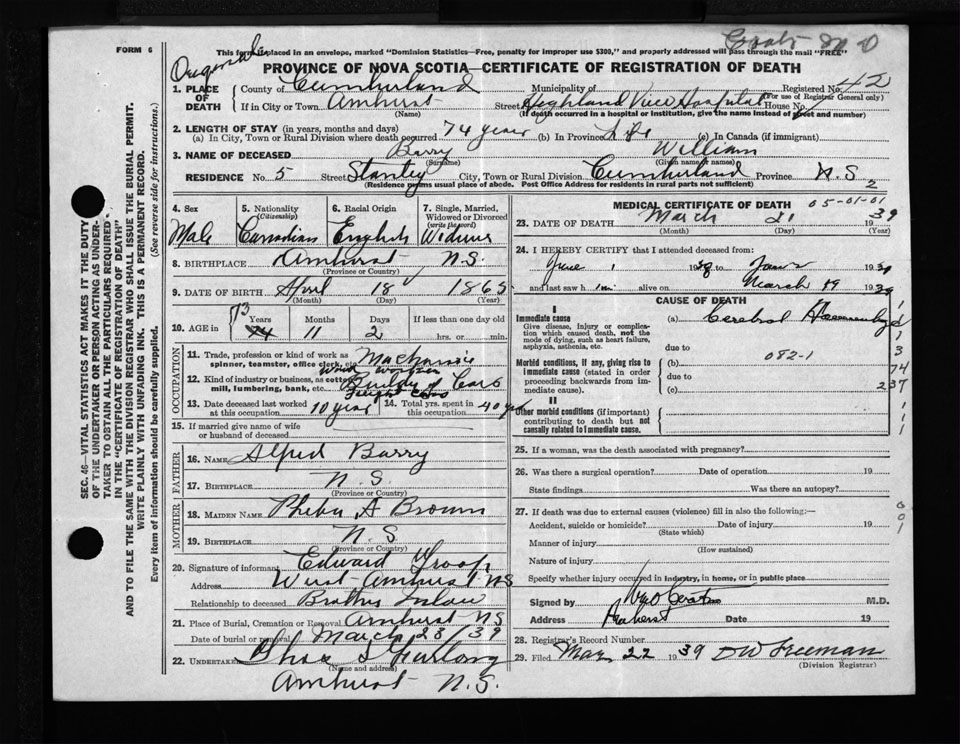 FORM 6
This form, placed in an envelope, marked "Dominion Statistics—Free, penalty for improper use $300," and properly addressed will pass through the mail "FREE"
PROVINCE OF NOVA SCOTIA—CERTIFICATE OF REGISTRATION OF DEATH
1. PLACE OF DEATH County of Cumberland Municipality of Registered No. 42
(For use of Registrar General only)
If in City or Town Amherst Street Highland View Hospital House No.
(Name) (If death occurred in a hospital or institution, give the name instead of street and number)
2. LENGTH OF STAY (in years, months and days)
(a) In City, Town or Rural Division where death occurred 74 year (b) In Province Life (c) In Canada (if immigrant)
3. NAME OF DECEASED Barry William
(Surname) (Given name or names)
RESIDENCE No. 5 Street Stanley City, Town or Rural Division Cumberland Province N.S
(Residence means usual place of abode. Post Office Address for residents in rural parts not sufficient) 2
4. Sex 5. Nationality (Citizenship) 6. Racial Origin 7. Single, Married, Widowed or Divorced (write the word)
Male Canadian English Widower
8. BIRTHPLACE Amherst N.S.
(Province or Country)
9. DATE OF BIRTH April 18 1865
(Month) (Day) (Year)
73
10. AGE in Years Months Days If less than one day old
74 11 2 hrs. or min.
OCCUPATION
11. Trade, profession or kind of work as spinner, teamster, office clerk, etc. Mechanic
wood worker
12. Kind of industry or business, as cotton mill, lumbering, bank, etc. Building of Cars
Freight Cars
13. Date deceased last worked at this occupation 10 year 14. Total yrs. spent in this occupation 40 yr
15. If married give name of wife or husband of deceased
FATHER
16. NAME Alfred Barry
17. BIRTHPLACE N.S.
(Province or Country)
MOTHER
18. MAIDEN NAME Pheba A Brown
19. BIRTHPLACE N.S.
(Province or Country)
20. Signature of informant Edward
Address West Amherst NS
Relationship to deceased Brother Inlaw
21. Place of Burial, Cremation or Removal Amherst NS
Date of burial or removal March 23/39
22. UNDERTAKER Chas S Furlong
(Name and address)
Amherst N.S.
MEDICAL CERTIFICATE OF DEATH 05-01-01
23. DATE OF DEATH March 21 1939
(Month) (Day) (Year)
24. I HEREBY CERTIFY that I attended deceased from:
June 1 1938 to 1939
and last saw him alive on March 19 1939
CAUSE OF DEATH
I
Immediate cause (a) Cerebral Haemorrhage
Give disease, injury or complication which caused death, not the mode of dying, such as heart failure, asphyxia, asthenia, etc.
due to
Morbid conditions, if any, giving rise to immediate cause (stated in order proceeding backwards from immediate cause). (b) 082-1
due to
(c)
II
Other morbid conditions (if important) contributing to death but not causally related to immediate cause.
1
1
3
74
237
1
1
1
25. If a woman, was the death associated with pregnancy?
26. Was there a surgical operation? Date of operation 19
State findings Was there an autopsy?
27. If death was due to external causes (violence) fill in also the following:—
Accident, suicide or homicide? Date of injury 19
(State which)
Manner of injury
(How sustained)
Nature of injury
Specify whether injury occurred in industry, in home, or in public place
001
Signed by M.D.
Address Amherst Date 19
28. Registrar's Record Number
29. Filed Mar 22 1939 DW Freeman
(Division Registrar)
SEC. 46—VITAL STATISTICS ACT MAKES IT THE DUTY
OF THE UNDERTAKER OR PERSON ACTING AS UNDER-
TAKER TO OBTAIN ALL THE PARTICULARS REQUIRED
IN THE "CERTIFICATE OF REGISTRATION OF DEATH"
AND TO FILE THE SAME WITH THE DIVISION REGISTRAR WHO SHALL ISSUE THE BURIAL PERMIT.
WRITE PLAINLY WITH UNFADING INK. THIS IS A PERMANENT RECORD.
Every item of information should be carefully supplied. (See reverse side for instructions.)